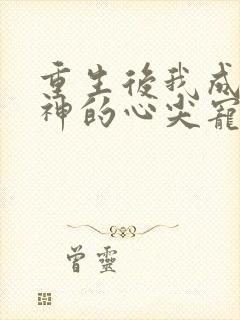 重生後我成
神的心尖寵
曾靈